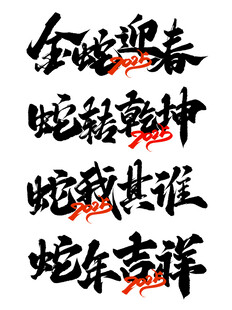 金蛇迎春
2025
蛇转乾坤
2025
蛇我其谁
2025
蛇年吉祥
2025